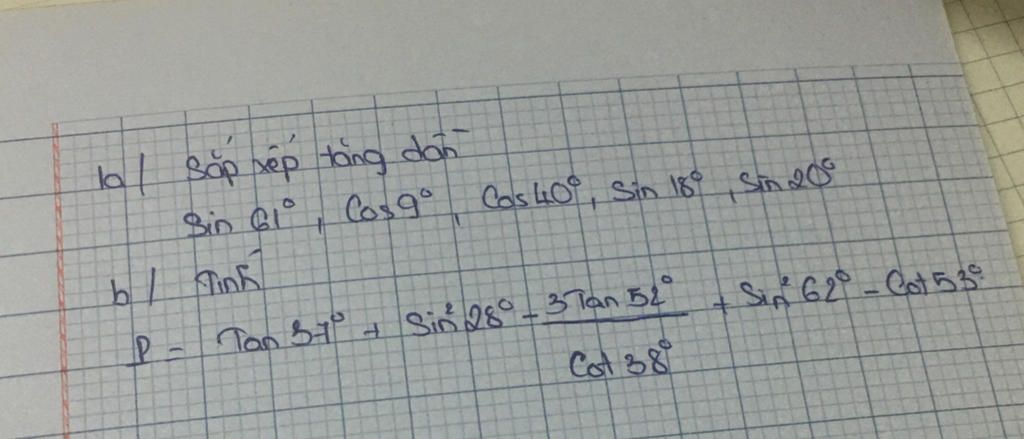 1a/ Sắp xếp tăng dần
Sin 61°, Cos 9°, Cos 40°, Sin 18°, Sin 20°
b/ Tính
P = Tan 37° + Sin² 28° - 3Tan 52° / Cot 38° + Sin² 62° - Cot 53°